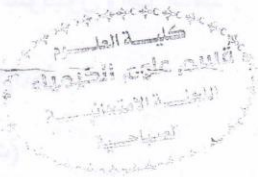 كلية العلوم
قسم علوم الكيمياء
اللجنة الامتحانية